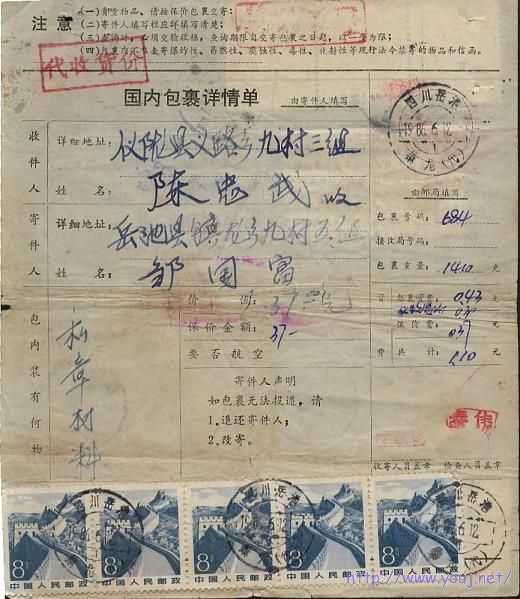 注意
(一)贵重物品、请按保价包裹交寄:
(二)寄件人填写栏应详填写清楚:
(四)包裹内不准寄爆炸性、易燃性、腐蚀性、毒性、放射性等现行法令禁寄的物品和信函。
代收货价
国内包裹详情单
由寄件人填写
收件人
详细地址: 仪陇县义路乡九村三组
姓名: 陈忠武收
寄件人
详细地址: 岳池县镇龙乡九村五组
姓名: 邹国富
四川岳池
1986.6.12
由邮局填写
包裹号码: 684
接役局号码:
包裹重量: 1410 克
资
包裹资费: 0.43 元
保价费: 037
费共计: 1.10 元
包内装有何物
私章材料
价值: 37元
保价金额: 37-
要否航空
寄件人声明
如包裹无法投递,请
1.退还寄件人;
2.改寄。
收寄人员盖章 检查人员盖章
四川岳池
1986.6.12
8分 8分 8分 8分 8分
中国人民邮政 中国人民邮政 中国人民邮政 中国人民邮政 中国人民邮政
http://www.youj.net/